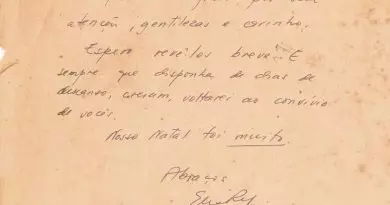 atenção, gentilezas e carinho.
Espero revê-los breve. E
sempre que disponha de dias de
descanso, creiam, voltarei ao convívio
de vocês.
Nosso Natal foi muito.
Abraços